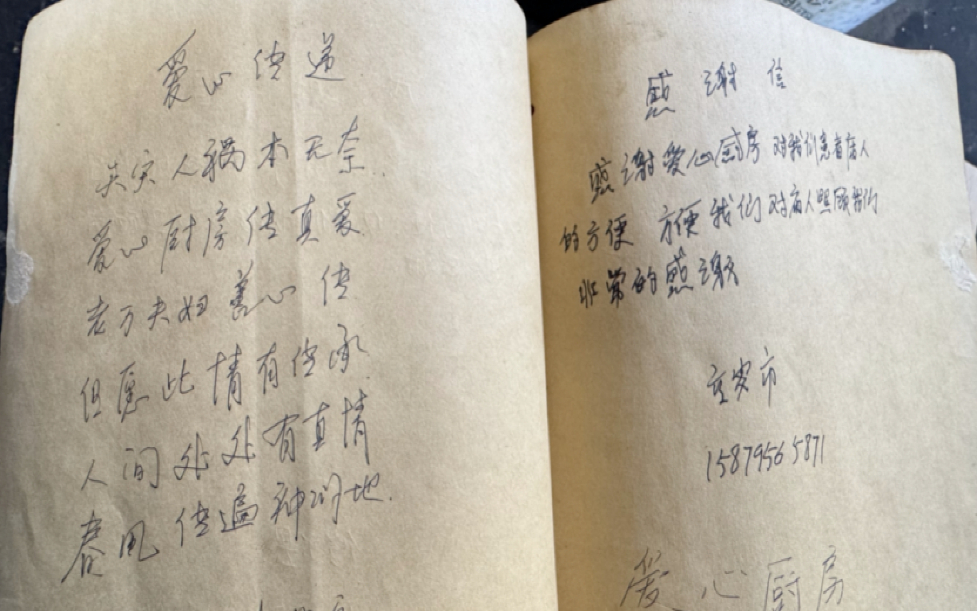 爱心传递
人祸本无奈
爱心厨房传真爱
老万夫妇善心传
但愿此情有传承
人间处处有真情
春风传遍神州地.
感谢信
感谢爱心厨房对我们患者病人
的方便 方便我们对病人照顾我们
非常的感谢
市
15879565871
爱心厨房